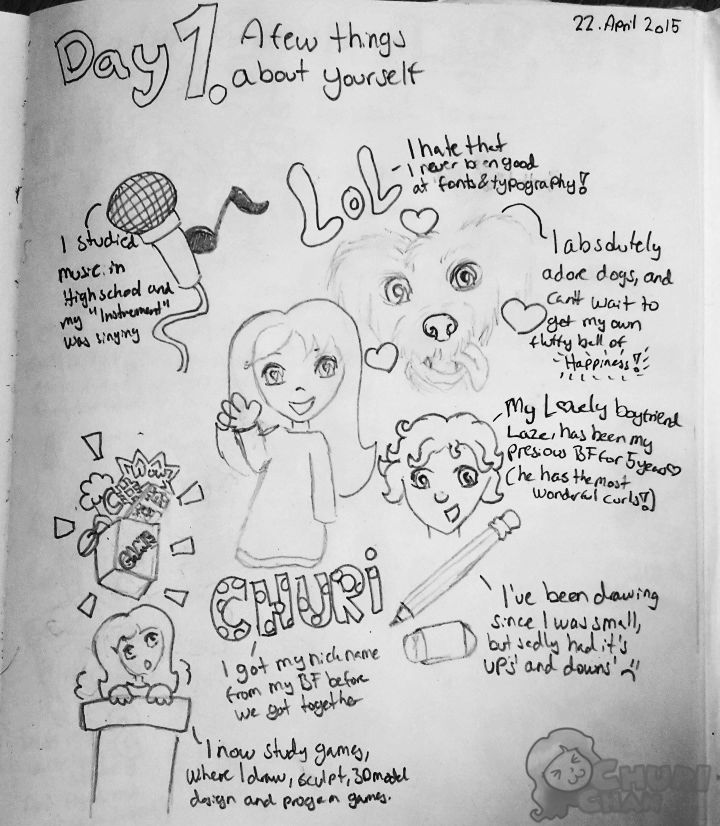 22. April 2015
Day 1.
A few things
about yourself
I hate that
I never been good
at fonts & typography!
LOL
I studied
music in
High school and
my "Instrument"
was singing
I absolutely
adore dogs, and
can't wait to
get my own
fluffy ball of
Happiness!
My Lovely boyfriend
Laze, has been my
presious BF for 5 years
(he has the most
wonderful curls!)
WOW!
GAME
CHURI
I got my nickname
from my BF before
we got together
I've been drawing
since I was small,
but sedly had it's
UPS' and downs'
I now study games,
where I draw, sculpt, 3D model
design and program games.
CHURI
CHAN